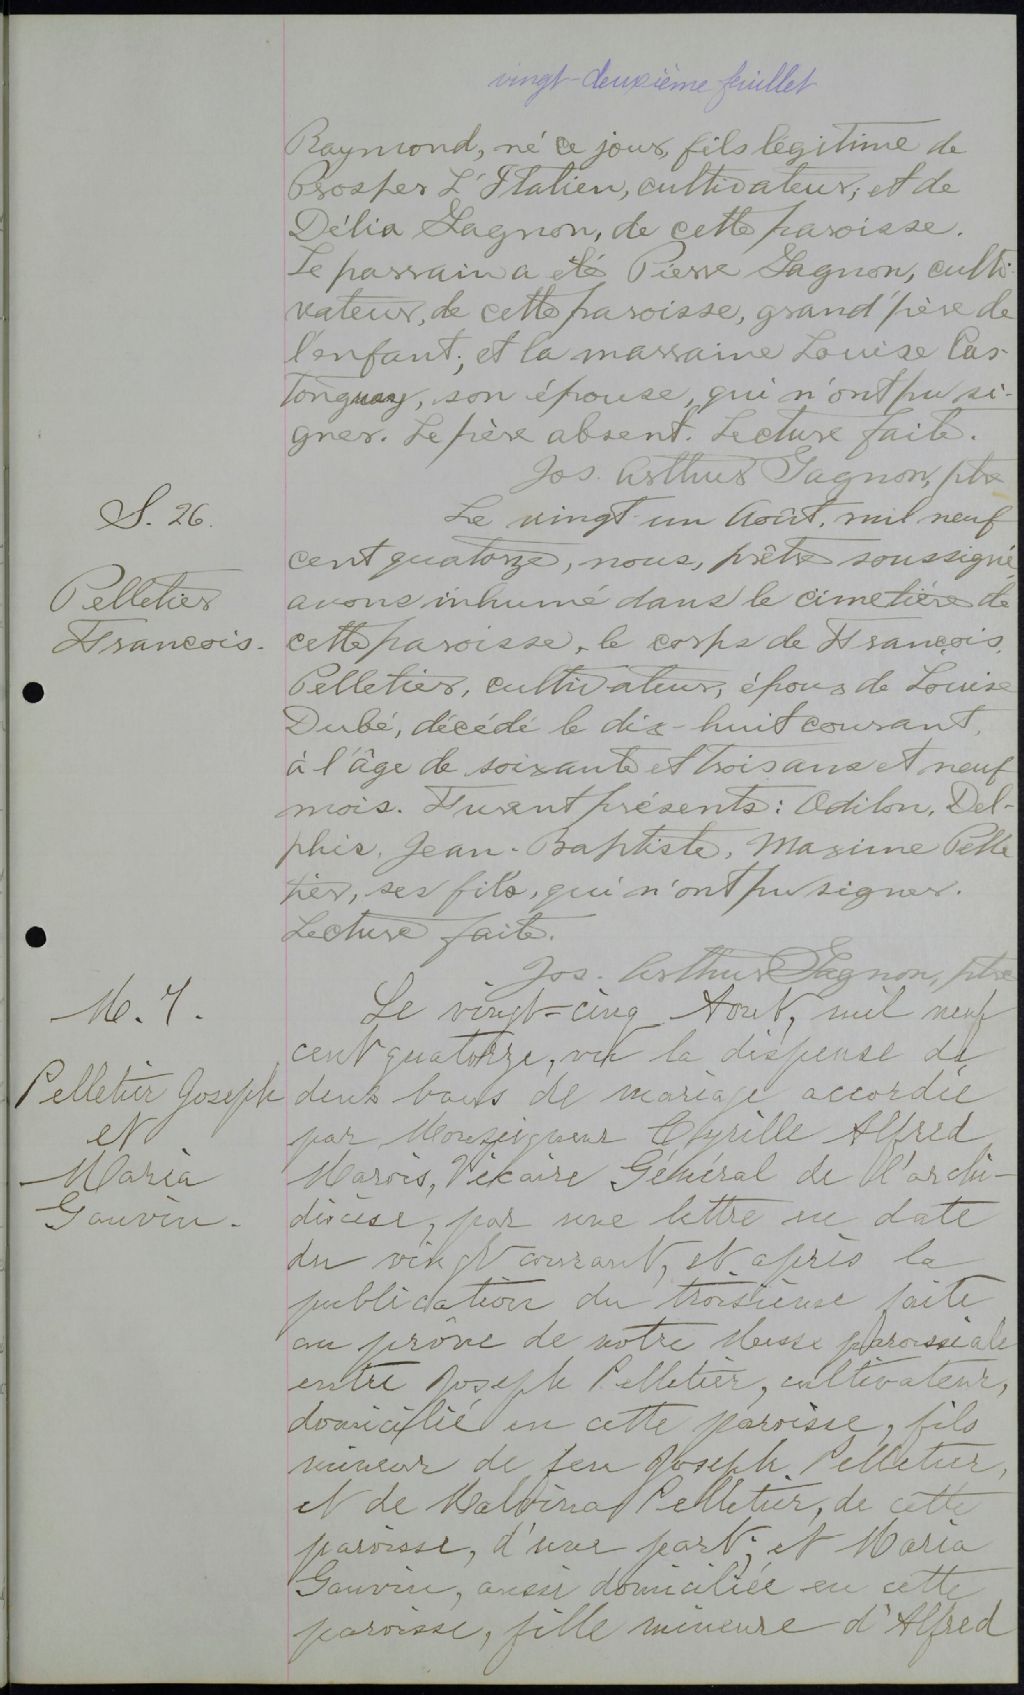 vingt-deuxième feuillet
Raymond, né ce jour, fils légitime de
Prosper L'Italien, cultivateur, et de
Délia Gagnon, de cette paroisse.
Le parrain a été Pierre Gagnon, culti-
vateur, de cette paroisse, grand'père de
l'enfant; et la marraine Louise Cas-
tonguay, son épouse, qui n'ont pu si-
gner. Le père absent. Lecture faite.
Jos. Arthur Gagnon, ptre
S. 26.
Pelletier
François.
Le vingt-un Août, mil neuf
cent quatorze, nous, prêtre soussigné,
avons inhumé dans le cimetière de
cette paroisse, le corps de François
Pelletier, cultivateur, époux de Louise
Dubé, décédé le dix-huit courant,
à l'âge de soixante et trois ans et neuf
mois. Furent présents: Odilon, Del-
phis, Jean-Baptiste, Maxime Pelle
tier, ses fils, qui n'ont pu signer.
Lecture faite.
Jos. Arthur Gagnon, ptre
M. 7.
Pelletier Joseph
et
Maria
Gauvin.
Le vingt=cinq Aout, mil neuf
cent quatorze, vu la dispense de
deux bans de mariage accordée
par Monseigneur Cyrille Alfred
Marois, Vicaire Général de l'archi-
diocèse, par une lettre en date
du vingt courant, et après la
publication du troisième faite
au prône de notre Messe paroissiale
entre Joseph Pelletier, cultivateur,
domicilié en cette paroisse, fils
mineur de feu Joseph Pelletier,
et de Malvina Pelletier, de cette
paroisse, d'une part; et Maria
Gauvin, aussi domiciliée en cette
paroisse, fille mineure d'Alfred